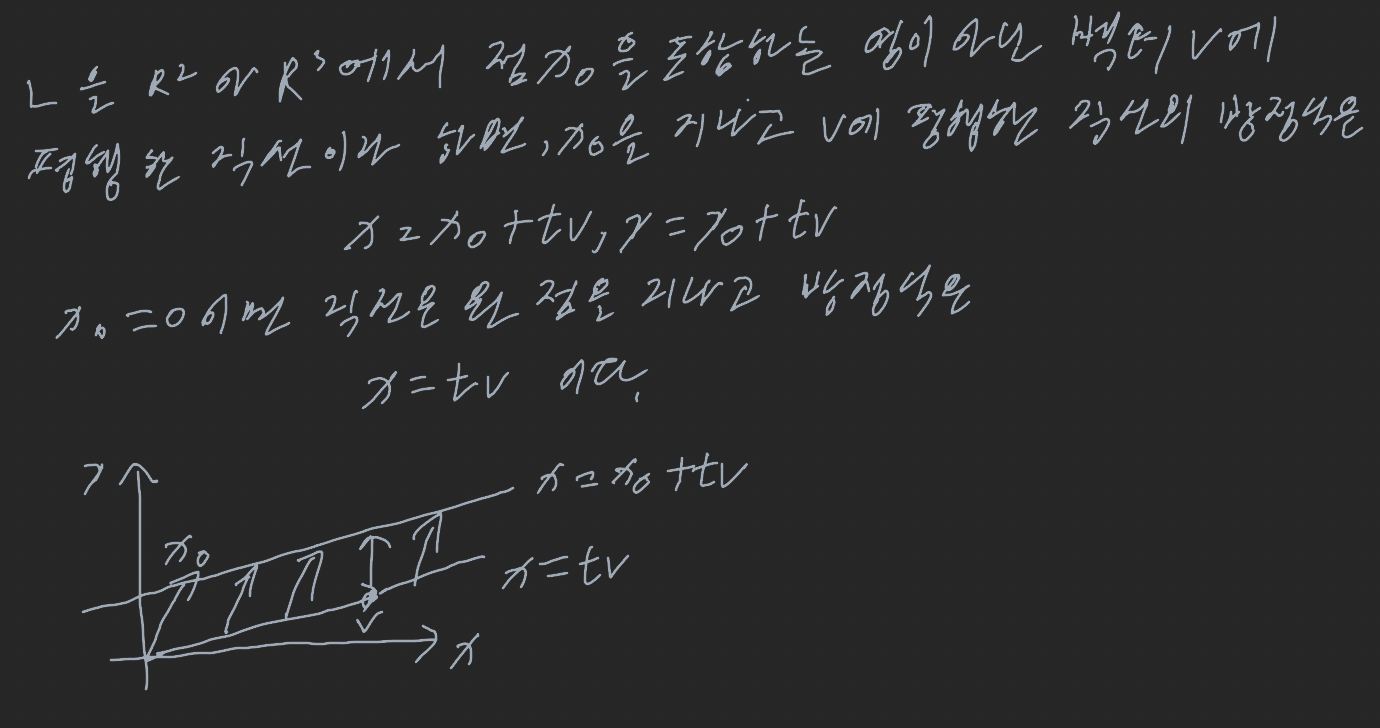 L을 R² 와 R³에서 점 x₀을 포함하는 영이 아닌 벡터 v에
평행한 직선이라 하면, x₀을 지나고 v에 평행한 직선의 방정식은
x = x₀ + tv, y = y₀ + tv
x₀ = 0 이면 직선은 원점을 지나고 방정식은
x = tv 이다.
y
x = x₀ + tv
x₀
x = tv
v
x